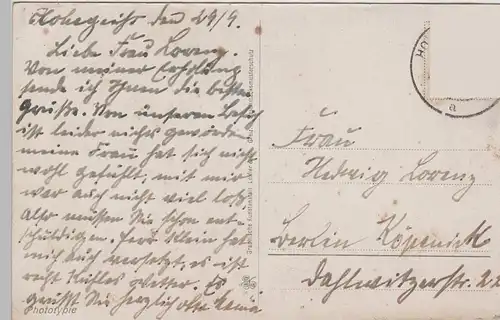 Hohegeiß den 29/9.
Liebe Frau Lorenz.
Von meiner Erholung
sende ich Ihnen die besten
Grüße. Von unseren Besuch
ist leider nichts geworden
meine Frau hat sich nicht
wohl gefühlt, mit mir
war auch nicht viel los
Also müssen Sie schon ent-
schuldigen. Herr Klein hat
mich auch versetzt, es ist
recht kühles Wetter. Es
grüßt Sie herzlich
Phototypie
Frau
Hedwig Lorenz
Berlin Köpenick
Dahlwitzerstr.
HO
a